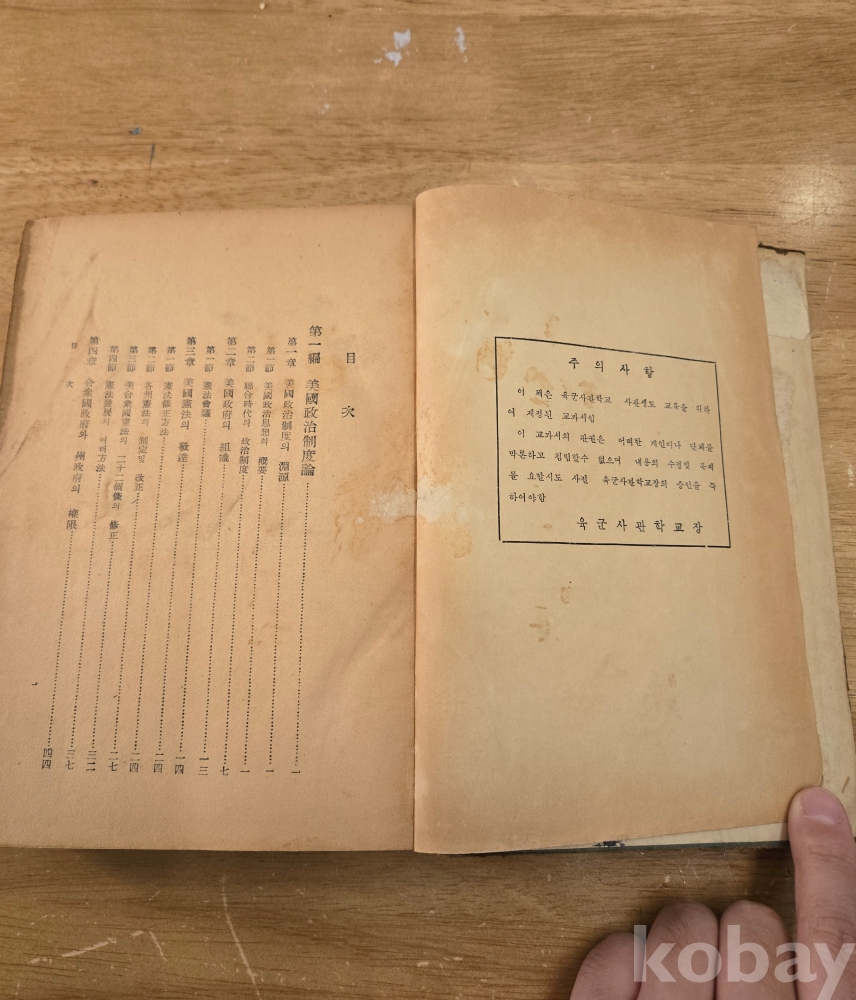 주의사항
이 책은 육군사관학교 사관생도 교육을 위하
여 제정된 교과서임
이 교과서의 판권은 여하한 개인이나 단체를
막론하고 침범할수 없으며 내용의 수정및 복제
를 요할시도 사전 육군사관학교장의 승인을 득
하여야함
육군사관학교장
目次
第一編 美國政治制度論……一
第一章 美國政治制度의 淵源……一
第一節 美國政治思想의 槪要……一
第二節 聯合時代의 政治制度……七
第二章 美國政府의 組織……一三
第一節 憲法會議……一四
第三章 美國憲法의 發達……二四
第一節 憲法修正方法……二四
第二節 各州憲法의 制定및 改正……二七
第三節 美合衆國憲法의 二十二個條의 修正……三二
第四節 憲法發展의 여러方法……三七
第四章 合衆國政府와 州政府의 權限……四四
目次
kobay